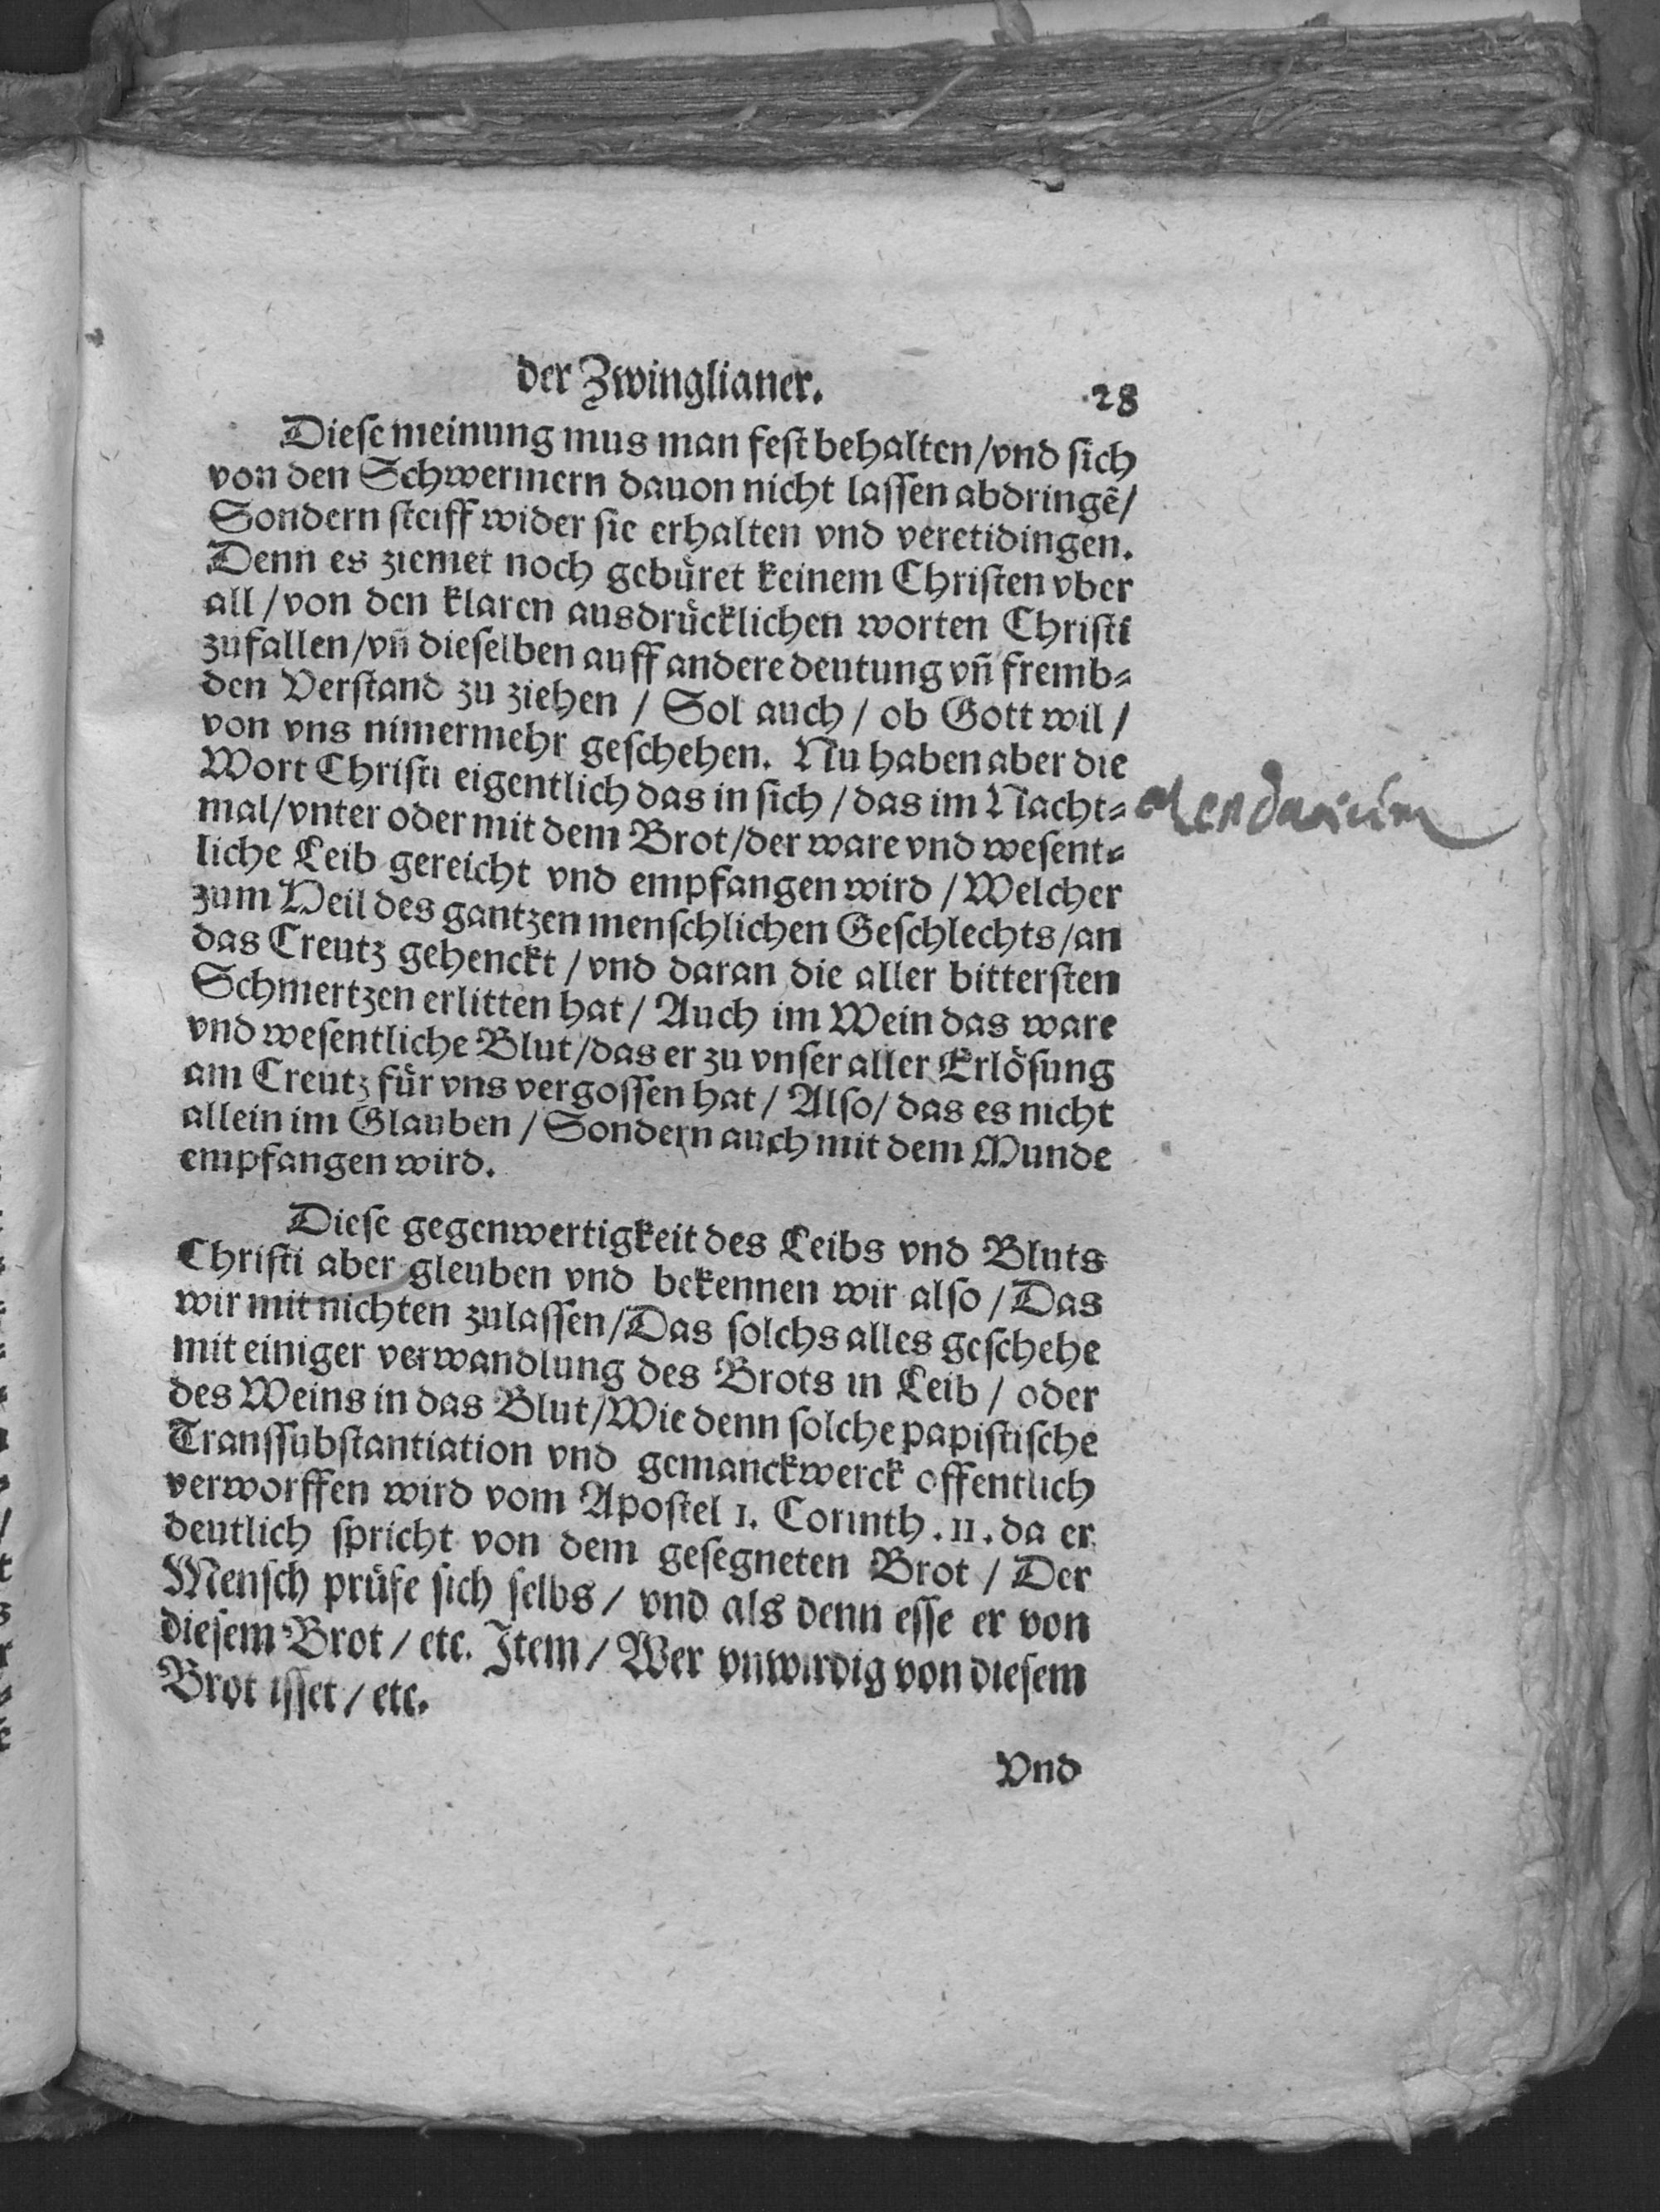 der Zwinglianer. 28
Diese meinung mus man fest behalten / vnd sich
von den Schwermern dauon nicht lassen abdringẽ /
Sondern steiff wider sie erhalten vnd veretidingen.
Denn es ziemet noch gebüret keinem Christen vber
all / von den klaren ausdrücklichen worten Christi
zufallen / vñ dieselben auff andere deutung vñ fremb⸗
den Verstand zu ziehen / Sol auch / ob Gott wil /
von vns nimermehr geschehen. Nu haben aber die
Wort Christi eigentlich das in sich / das im Nacht⸗
mal / vnter oder mit dem Brot / der ware vnd wesent⸗
liche Leib gereicht vnd empfangen wird / Welcher
zum Heil des gantzen menschlichen Geschlechts / an
das Creutz gehenckt / vnd daran die aller bittersten
Schmertzen erlitten hat / Auch im Wein das ware
vnd wesentliche Blut / das er zu vnser aller Erlösung
am Creutz für vns vergossen hat / Also / das es nicht
allein im Glauben / Sondern auch mit dem Munde
empfangen wird.
Diese gegenwertigkeit des Leibs vnd Bluts
Christi aber gleuben vnd bekennen wir also / Das
wir mit nichten zulassen / Das solchs alles geschehe
mit einiger verwandlung des Brots in Leib / oder
des Weins in das Blut / Wie denn solche papistische
Transsubstantiation vnd gemanckwerck offentlich
verworffen wird vom Apostel 1. Corinth. 11. da er
deutlich spricht von dem gesegneten Brot / Der
Mensch prüfe sich selbs / vnd als denn esse er von
diesem Brot / etc. Item / Wer vnwirdig von diesem
Brot isset / etc.
Vnd